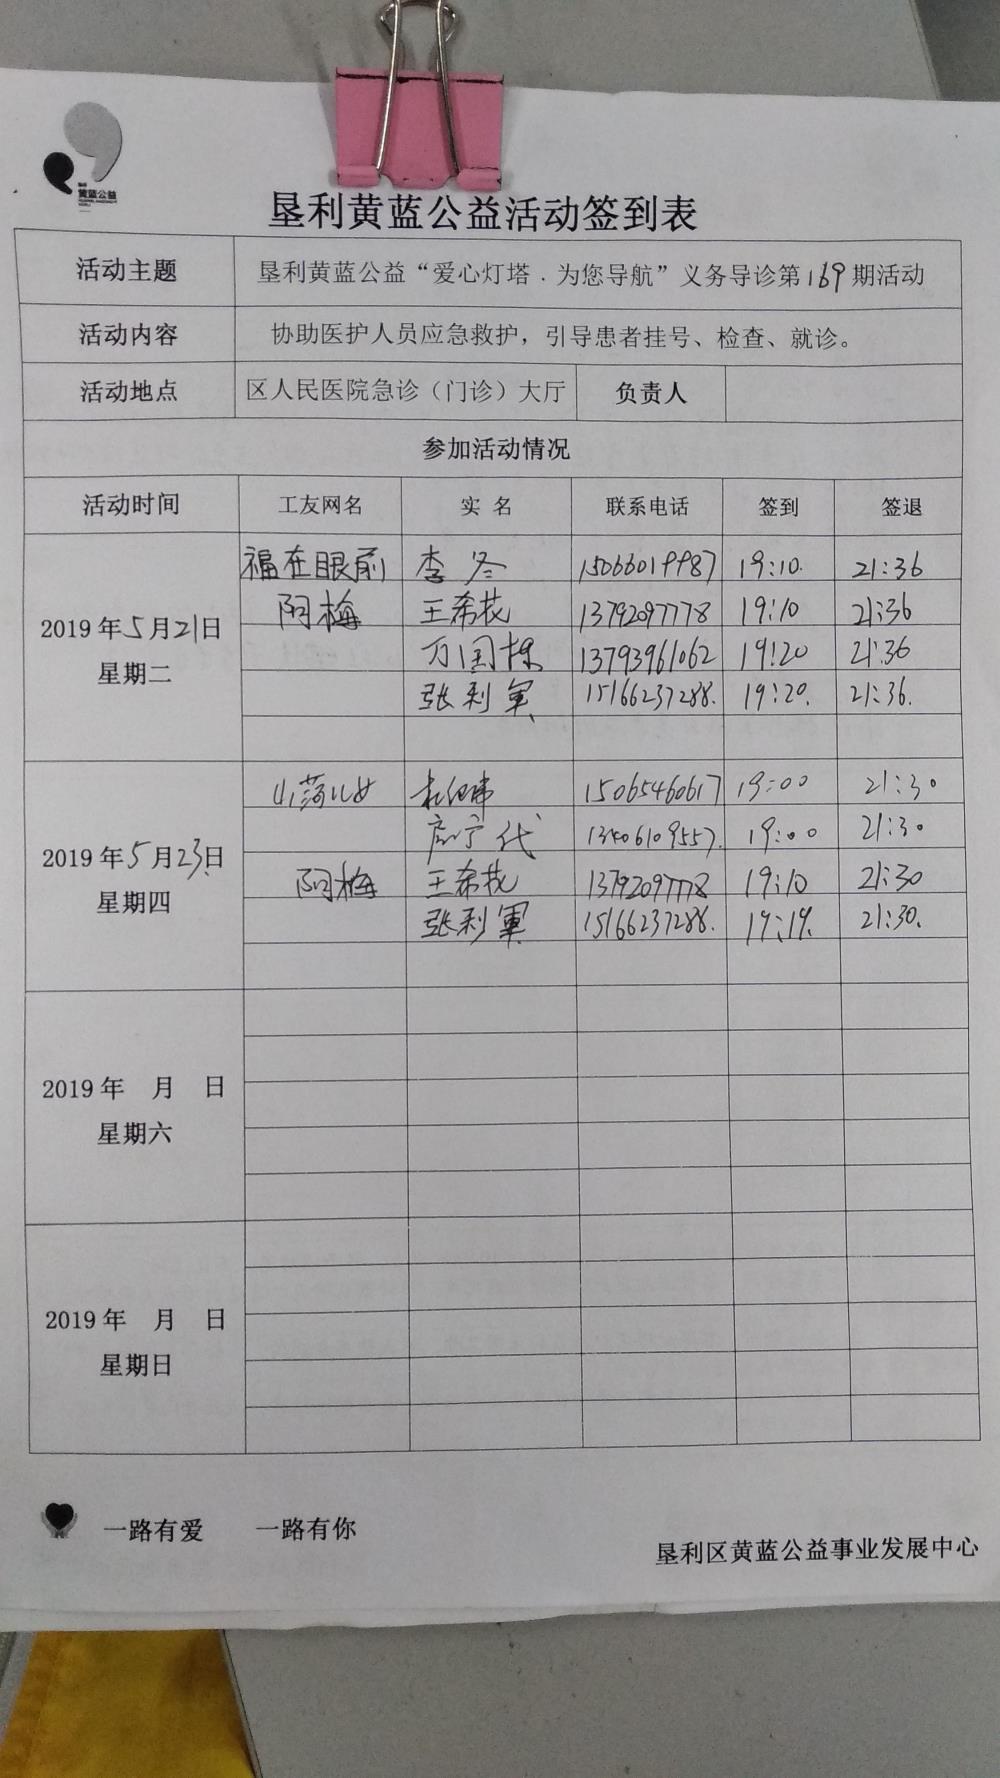 黄蓝公益
垦利黄蓝公益活动签到表
活动主题 垦利黄蓝公益“爱心灯塔．为您导航”义务导诊第169期活动
活动内容 协助医护人员应急救护，引导患者挂号、检查、就诊。
活动地点 区人民医院急诊（门诊）大厅 负责人
参加活动情况
活动时间 工友网名 实 名 联系电话 签到 签退
2019年5月21日
星期二
福在眼前 李冬 15066019987 19:10. 21:36
阿梅 王希花 13792097778 19:10 21:36
万国栋 13793961062 19:20 21:36
张利軍 15166237288. 19:20. 21:36.
2019年5月23日
星期四
15065460617 19:00 21:30
13406109557. 19:00 21:30
阿梅 王希花 13792097778 19:10 21:30
张利軍 15166237288. 19:19. 21:30.
2019年 月 日
星期六
2019年 月 日
星期日
一路有爱 一路有你
垦利区黄蓝公益事业发展中心